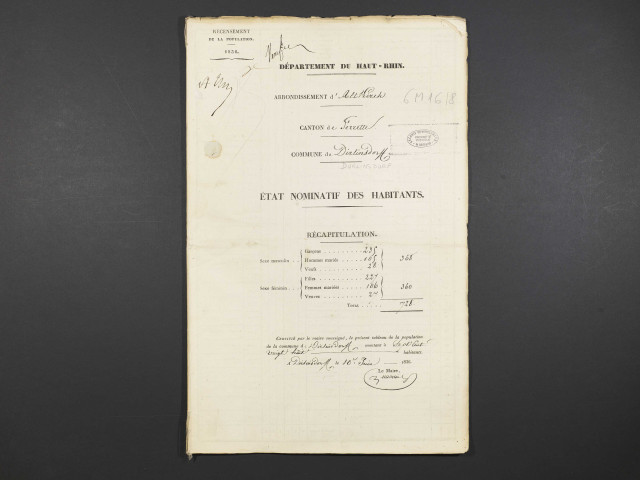 RECENSEMENT
DE LA POPULATION.
1836.
DÉPARTEMENT DU HAUT-RHIN.
ARRONDISSEMENT d'Altkirch
6M1618
CANTON de Ferrette
COMMUNE de Dirlinsdorff
ÉTAT NOMINATIF DES HABITANTS.
RÉCAPITULATION.
Sexe masculin
Garçons 235
Hommes mariés 165
Veufs 28
368
Sexe féminin
Filles
Femmes mariées 166
Veuves
360
Total 728
Constaté par le maire soussigné, le présent tableau de la population
de la commune de Dirlinsdorff montant à Sept Cent
vingt huit habitants.
à Dirlinsdorff le 10 Juin 1836
Le Maire,